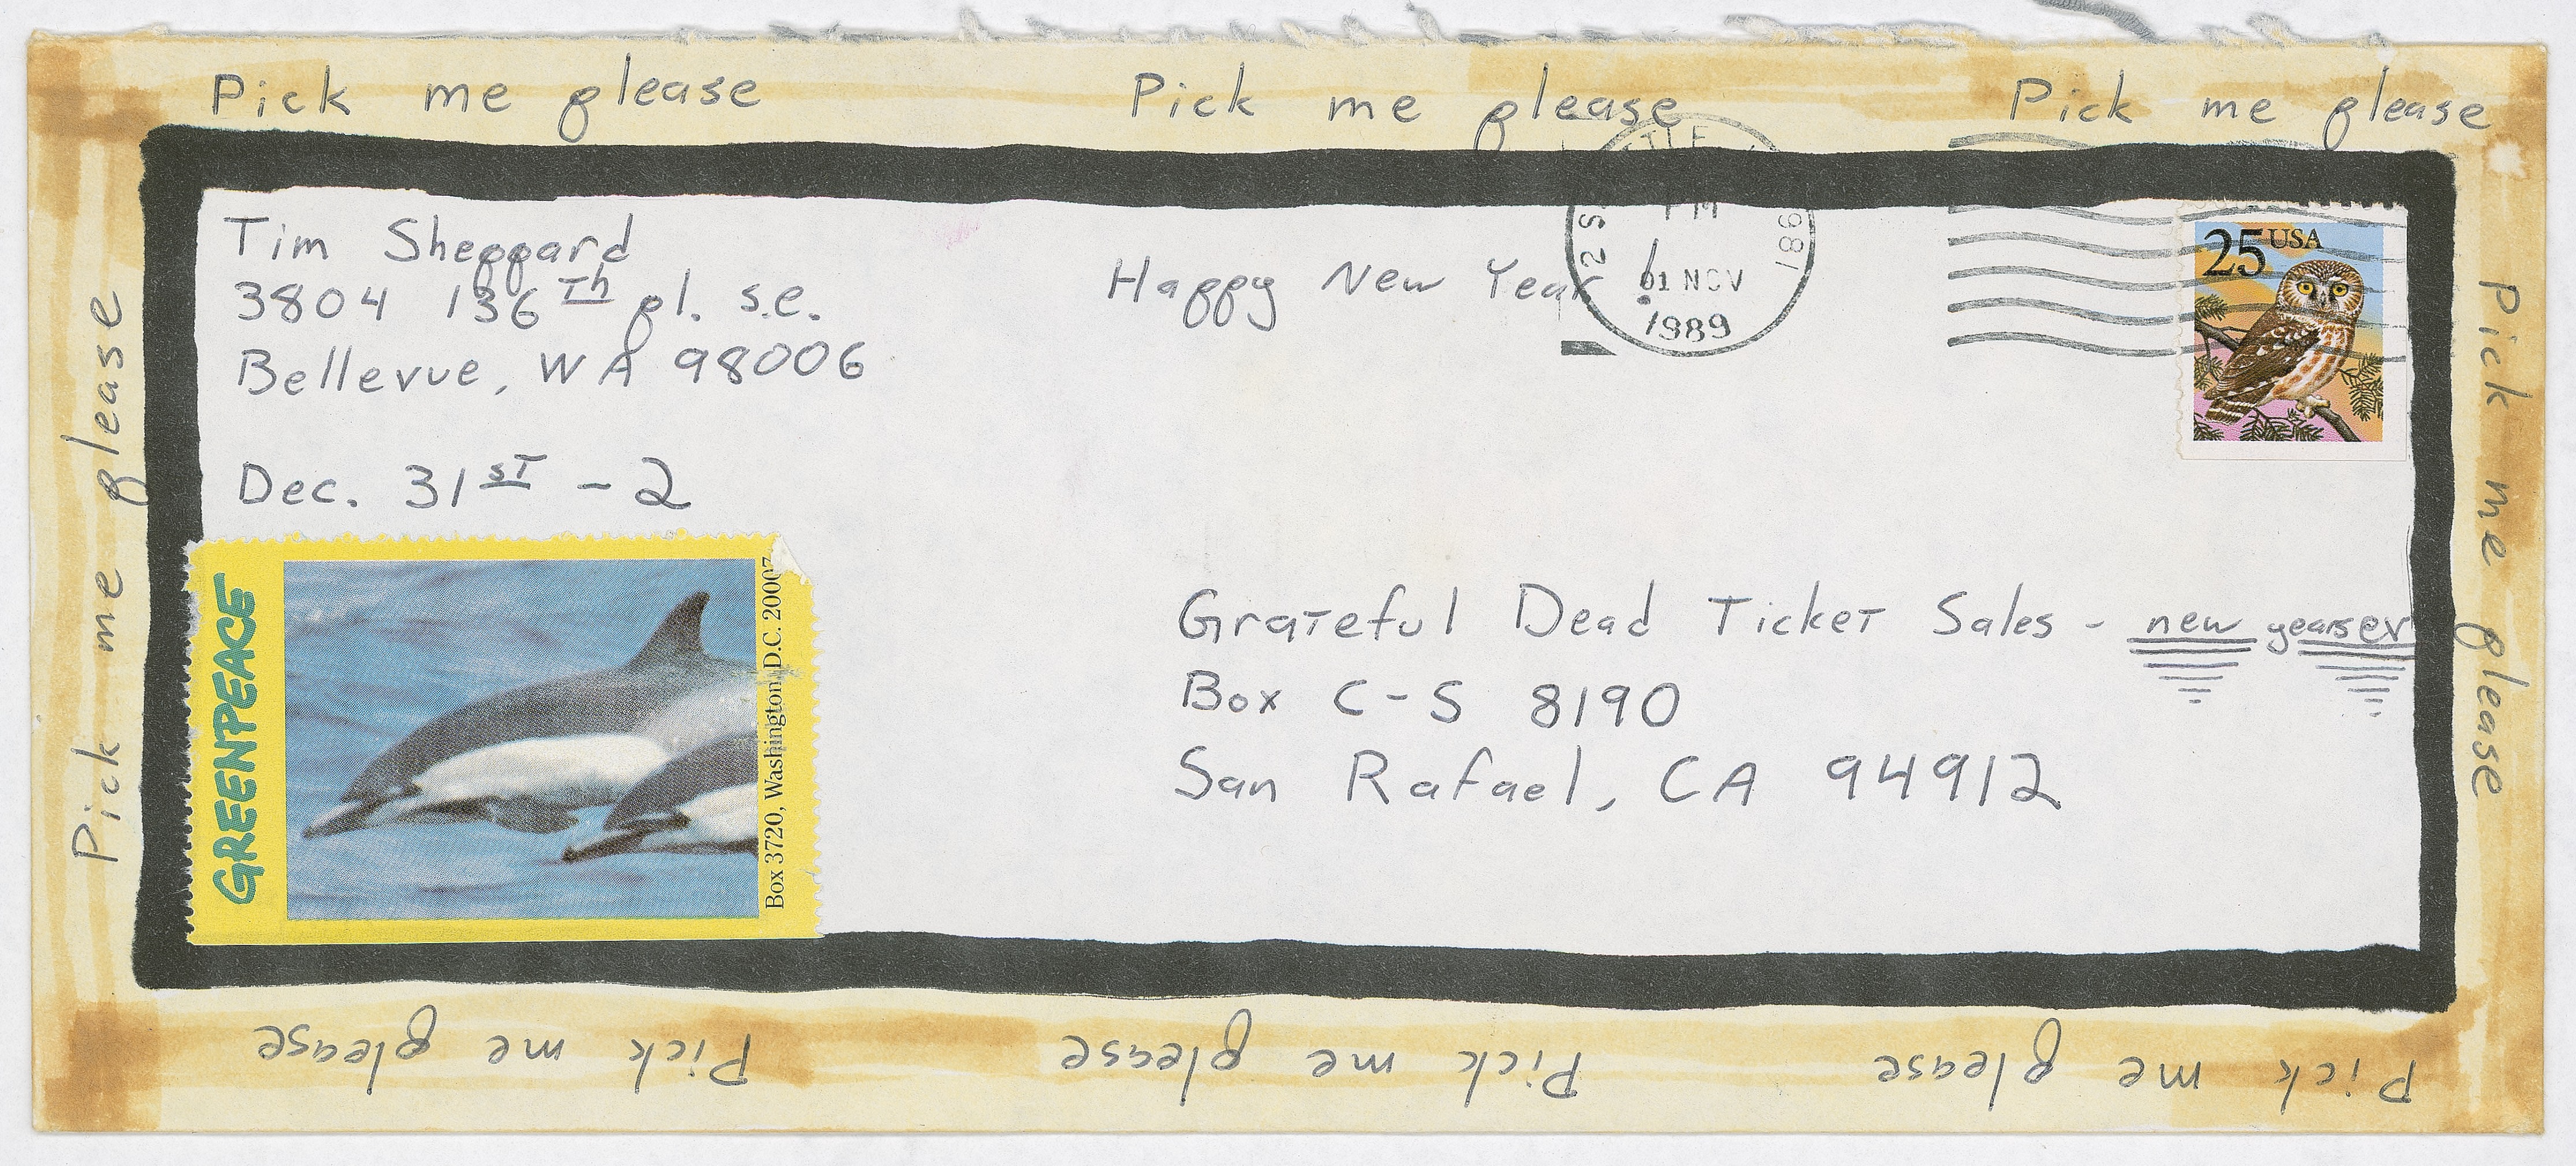 Pick me please Pick me please Pick me please
Tim Sheppard
3804 136Th pl. s.e.
Bellevue, WA 98006
Dec. 31sT - 2
Happy New Year!
PM
01 NOV
1989
25 USA
GREENPEACE
Box 3720, Washington, D.C. 20007
Grateful Dead Ticket Sales - new years ev
Box C-S 8190
San Rafael, CA 94912
Pick me please
Pick me please
Pick me please Pick me please Pick me please